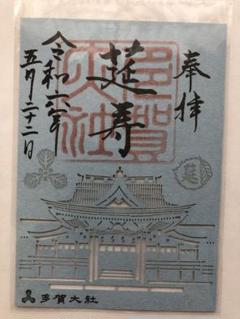 奉拝
莚寿
令和六年
五月二十二日
多賀大社
莚
多賀大社